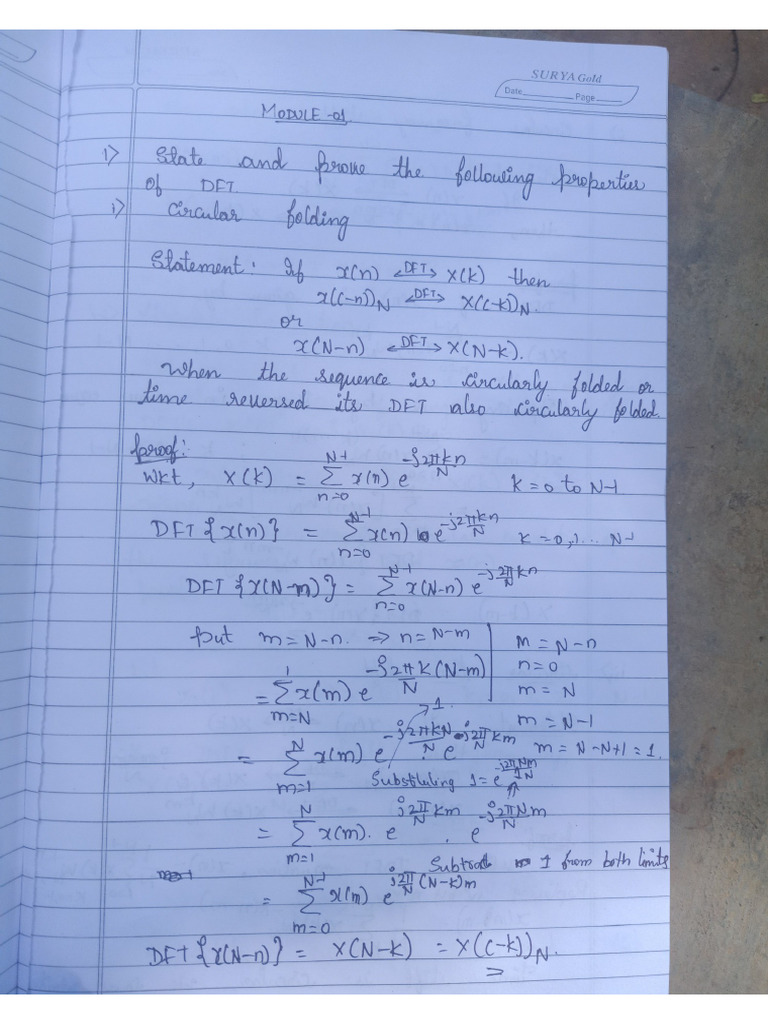 SURYA Gold
Date______ Page____
MODULE-01
1) State and prove the following properties
of DFT
i) Circular folding
Statement: If x(n) <-DFT-> X(k) then
x((-n))N <-DFT-> X((-k))N.
or
x(N-n) <-DFT-> X(N-k).
When the sequence is circularly folded or
time reversed its DFT also circularly folded.
proof:
Wkt, X(k) = Σ_{n=0}^{N-1} x(n) e^{-j2πkn/N} k=0 to N-1
DFT{x(n)} = Σ_{n=0}^{N-1} x(n) e^{-j2πkn/N} k=0,1... N-1
DFT{x(N-m)} = Σ_{n=0}^{N-1} x(N-n) e^{-j2π/N kn}
put m=N-n. ⇒ n=N-m
= Σ_{m=N}^{1} x(m) e^{-j2π/N k(N-m)}
m=N-n
n=0
m=N
m=N-1
m=N-N+1=1.
= Σ_{m=1}^{N} x(m) e^{-j2πkN/N} . e^{j2π/N km}
1.
Substituting 1=e^{-j2πNm/N}
= Σ_{m=1}^{N} x(m). e^{j2π/N km} . e^{-j2π/N Nm}
Subtract 1 from both limits
= Σ_{m=0}^{N-1} x(m) e^{j2π/N (N-k)m}
DFT{x(N-n)} = X(N-k) = X((-k))N.